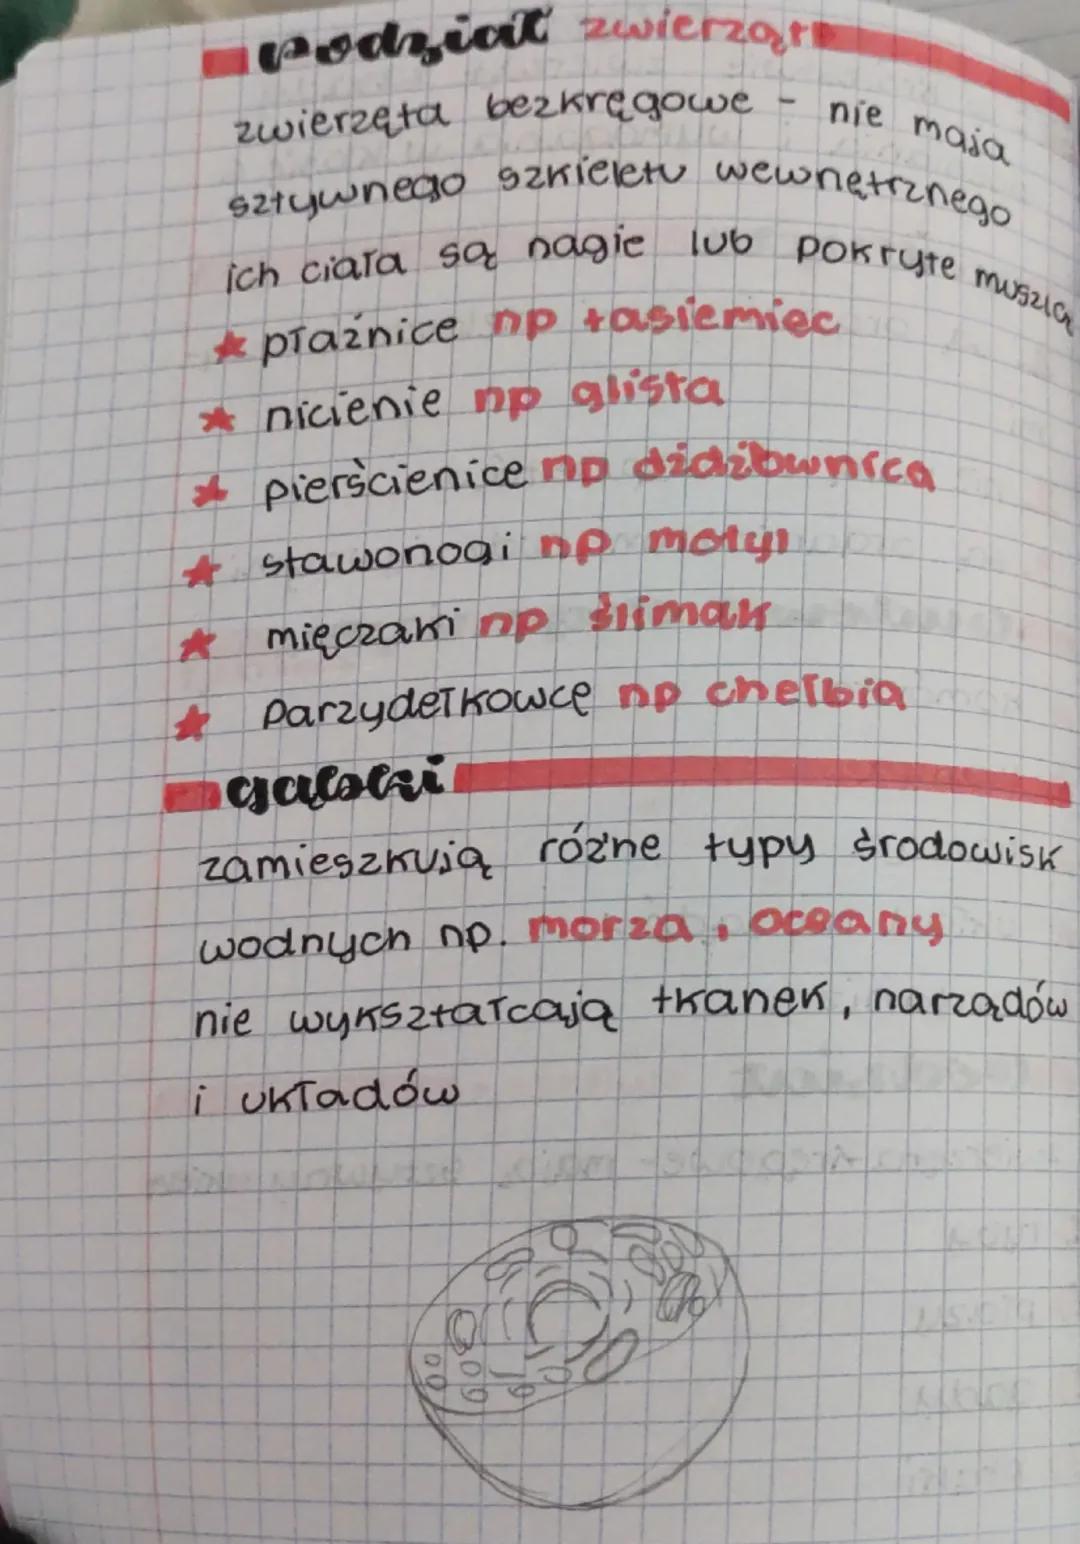 podział zwierząt
zwierzęta bezkręgowe - nie mają
sztywnego szkieletu wewnętrznego
ich ciała są nagie lub pokryte muszlą
★ płaźnice np tasiemiec
★ nicienie np glista
★ pierścienice np dżdżownica
★ stawonogi np motyl
★ mięczaki np ślimak
★ Parzydełkowce np chełbia
gąbki
zamieszkują różne typy środowisk
wodnych np. morza, oceany
nie wykształcają tkanek, narządów
i układów